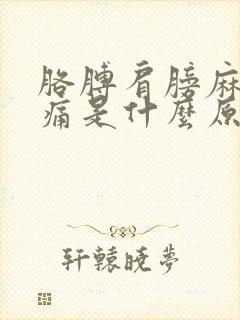 胳膊肩膀麻
痛是什麼原
轩辕晓梦